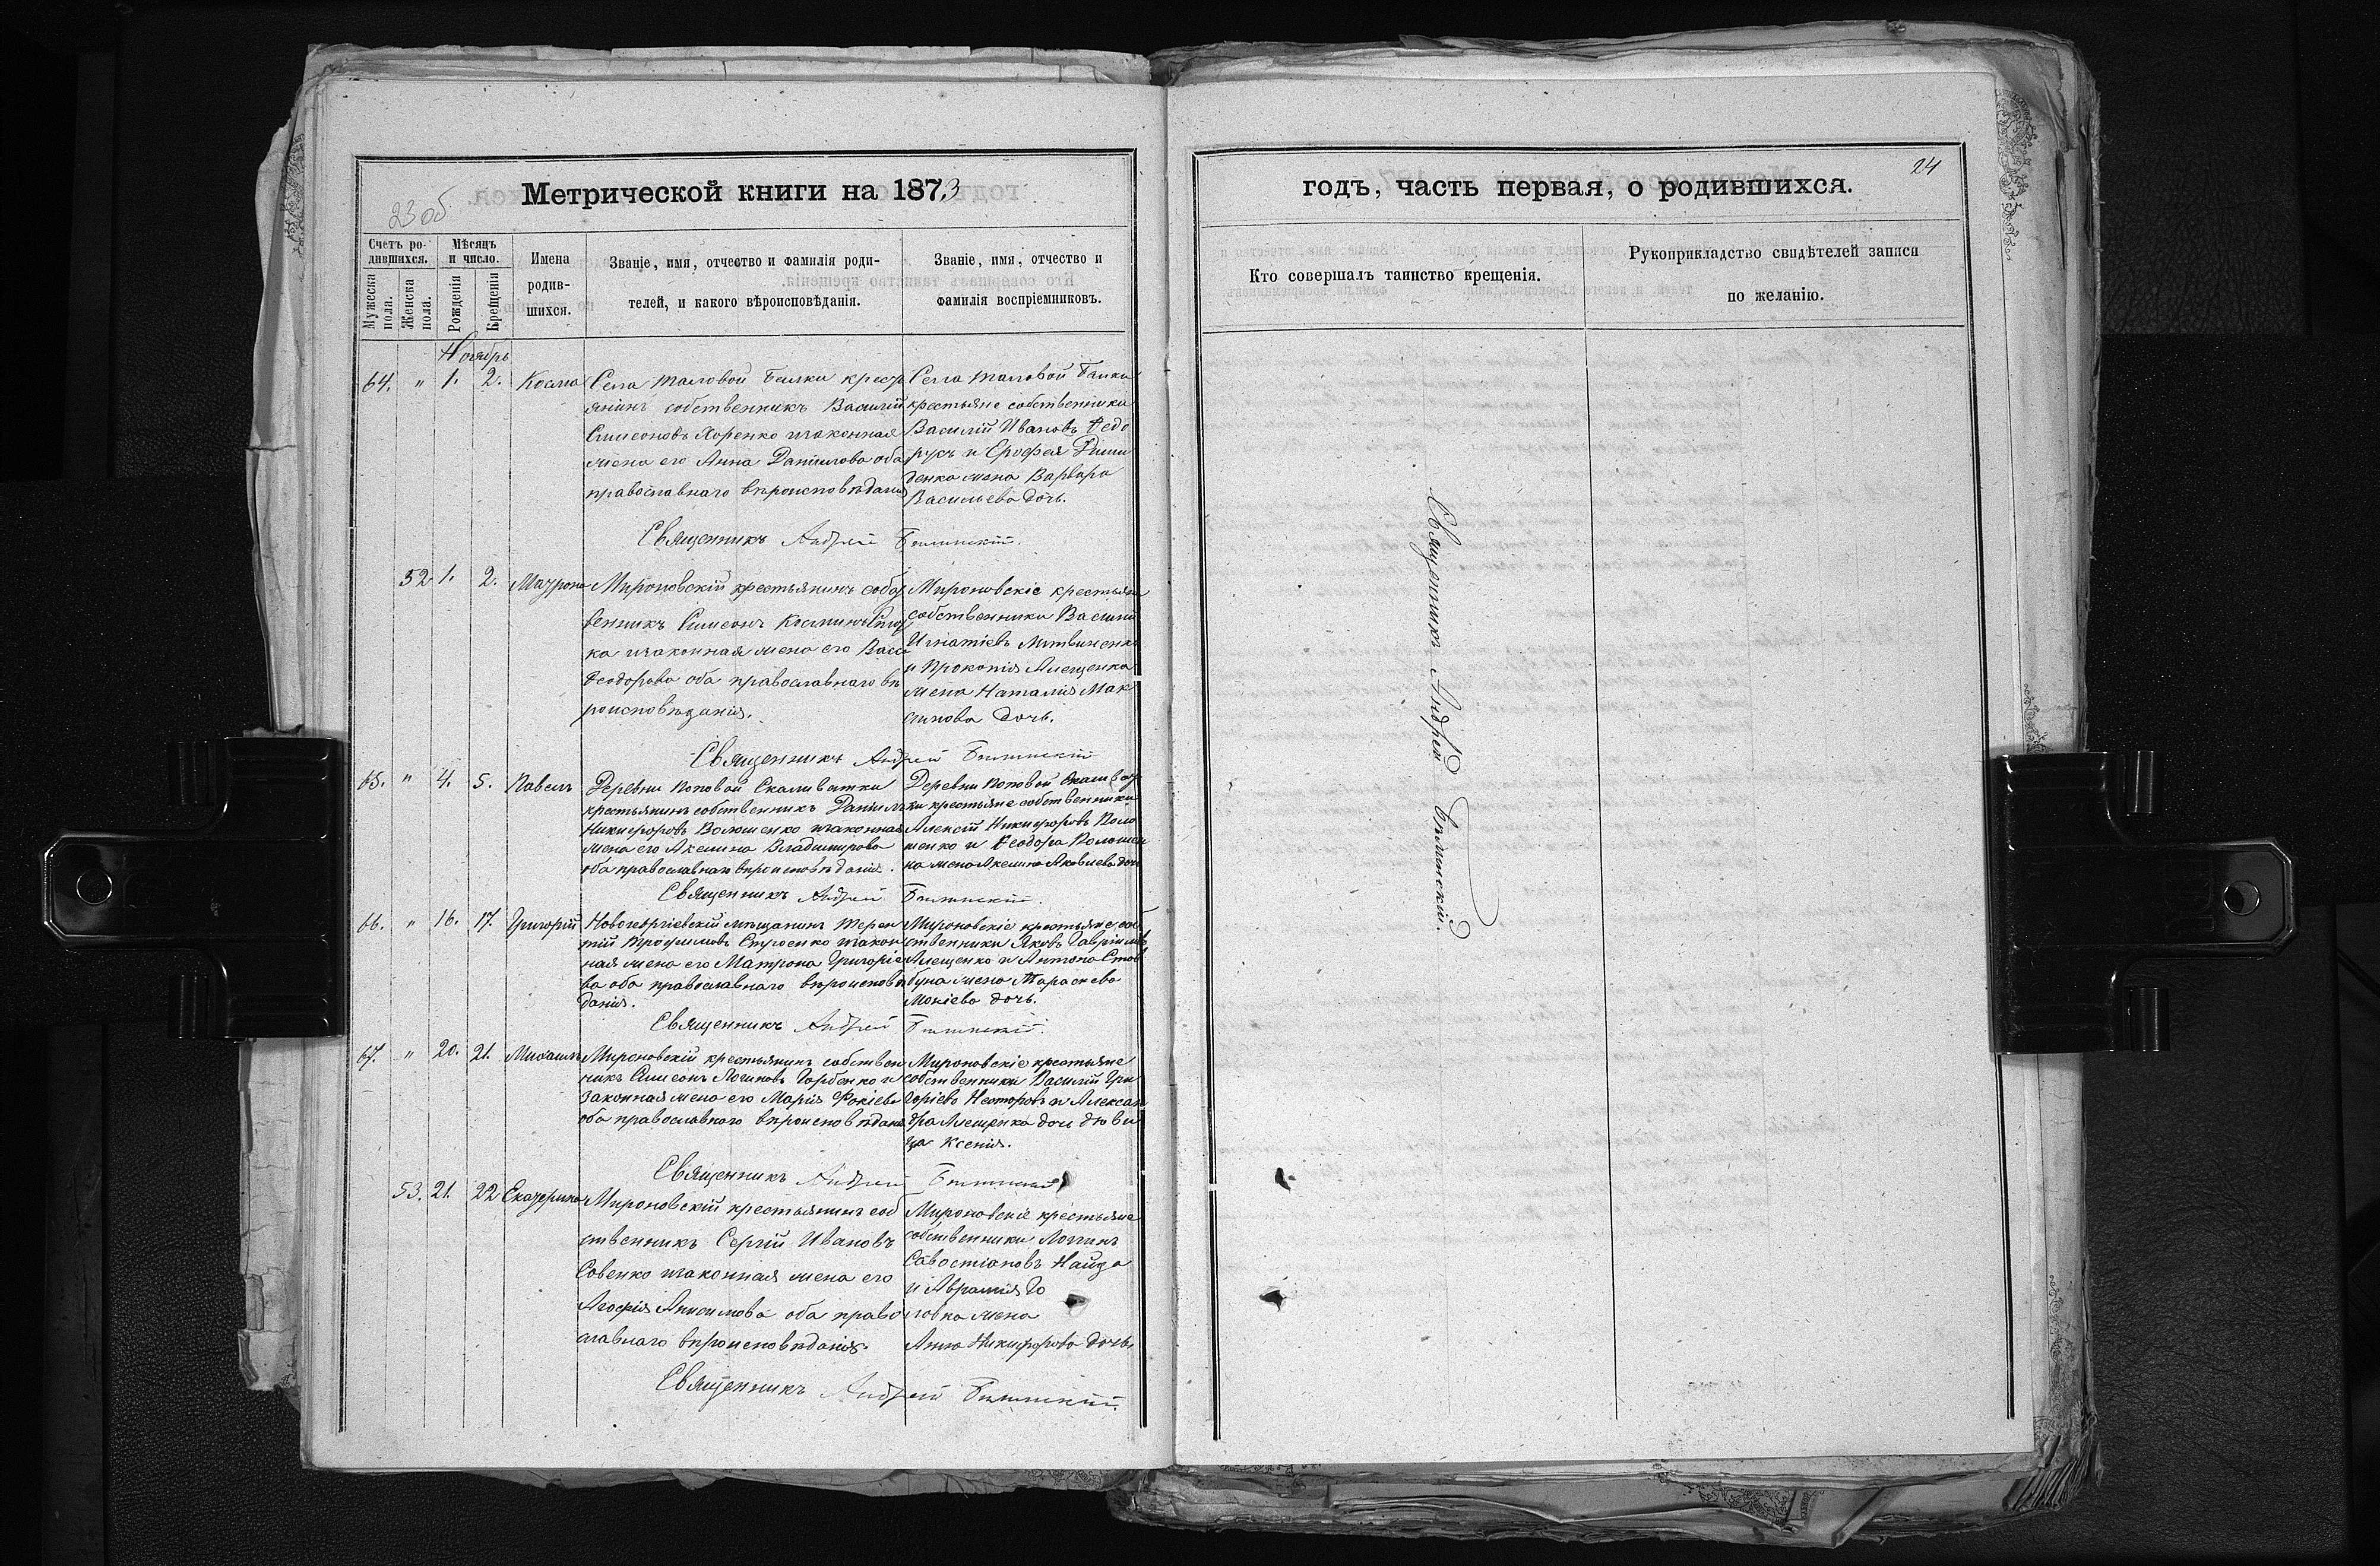 23 об
Метрической книги на 1873
Счетъ родившихся.
Мужеска пола.
Женска пола.
Мѣсяцъ и число.
Рожденія
Крещенія
Имена родившихся.
Званіе, имя, отчество и фамилія родителей, и какого вѣроисповѣданія.
Званіе, имя, отчество и фамилія воспріемниковъ.
Ноябрь
64. " 1. 2. Косма
Села Таловой Балки крест
янинъ собственникъ Василій
Симеоновъ Хоренко изаконная
жена его Анна Даніилова оба
православнаго вѣроисповѣданія
Села Таловой Балки
крестьяне собственники
Василій Ивановъ Федо
рукъ и Ерофея
денка жена Варвара
Васильева дочь.
Священникъ Андрей
52 1. 2. Матрона
Мироновскій крестьянинъ собст
венникъ Симеонъ Косминъ
ка изаконная жена его Васса
Феодорова оба православнаго вѣ
роисповѣданія.
Мироновскіе крестьяне
собственники Василій
Игнатіевъ Литвиненко
и Прокопія Алещенка
жена Наталія Мак
симова дочь.
Священникъ Андрей
65. " 4. 5. Павелъ
Деревни Поповой Скаливатки
крестьянинъ собственникъ Даніилъ
Никифоровъ Волошенко изаконная
жена его Акелина Владимирова
оба православнаго вѣроисповѣданія.
Деревни Поповой Скаливат
ки крестьяне собственники
Алексій Никифоровъ Воло
шенко и Феодора Волошен
ка жена Акелина Яковлева дочь
Священникъ Андрей
66. " 16. 17. Григорій
Новогеоргіевскій мѣщанинъ Терен
тій Трофимовъ Строенко изакон
ная жена его Матрона Григоріе
ва оба православнаго вѣроисповѣ
данія.
Мироновскіе крестьяне соб
ственники Яковъ Гавріиловъ
Алещенко и Антона Стов
буна жена Параскева
Мокіева дочь.
Священникъ Андрей
67. " 20. 21. Михаилъ
Мироновскій крестьянинъ собствен
никъ Симеонъ Логиновъ Горбенко и
законная жена его Марія Фокіева
оба православнаго вѣроисповѣданія
Мироновскіе крестьяне
собственники Василій Гри
горіевъ Несторовъ и Алексан
дра Алещенка дочь дѣви
ца Ксенія.
Священникъ Андрей
53. 21. 22 Екатерина
Мироновскій крестьянинъ соб
ственникъ Сергій Ивановъ
Совенко изаконная жена его
Агафія Анисимова оба право
славнаго вѣроисповѣданія.
Мироновскіе крестьяне
собственники Логгинъ
Савостіановъ Найда
и Аврамія Го
ловка жена
Анна Никифорова дочь.
Священникъ Андрей
24
годъ, часть первая, о родившихся.
Кто совершалъ таинство крещенія.
Рукоприкладство свидѣтелей записи
по желанію.
Священникъ Андрей